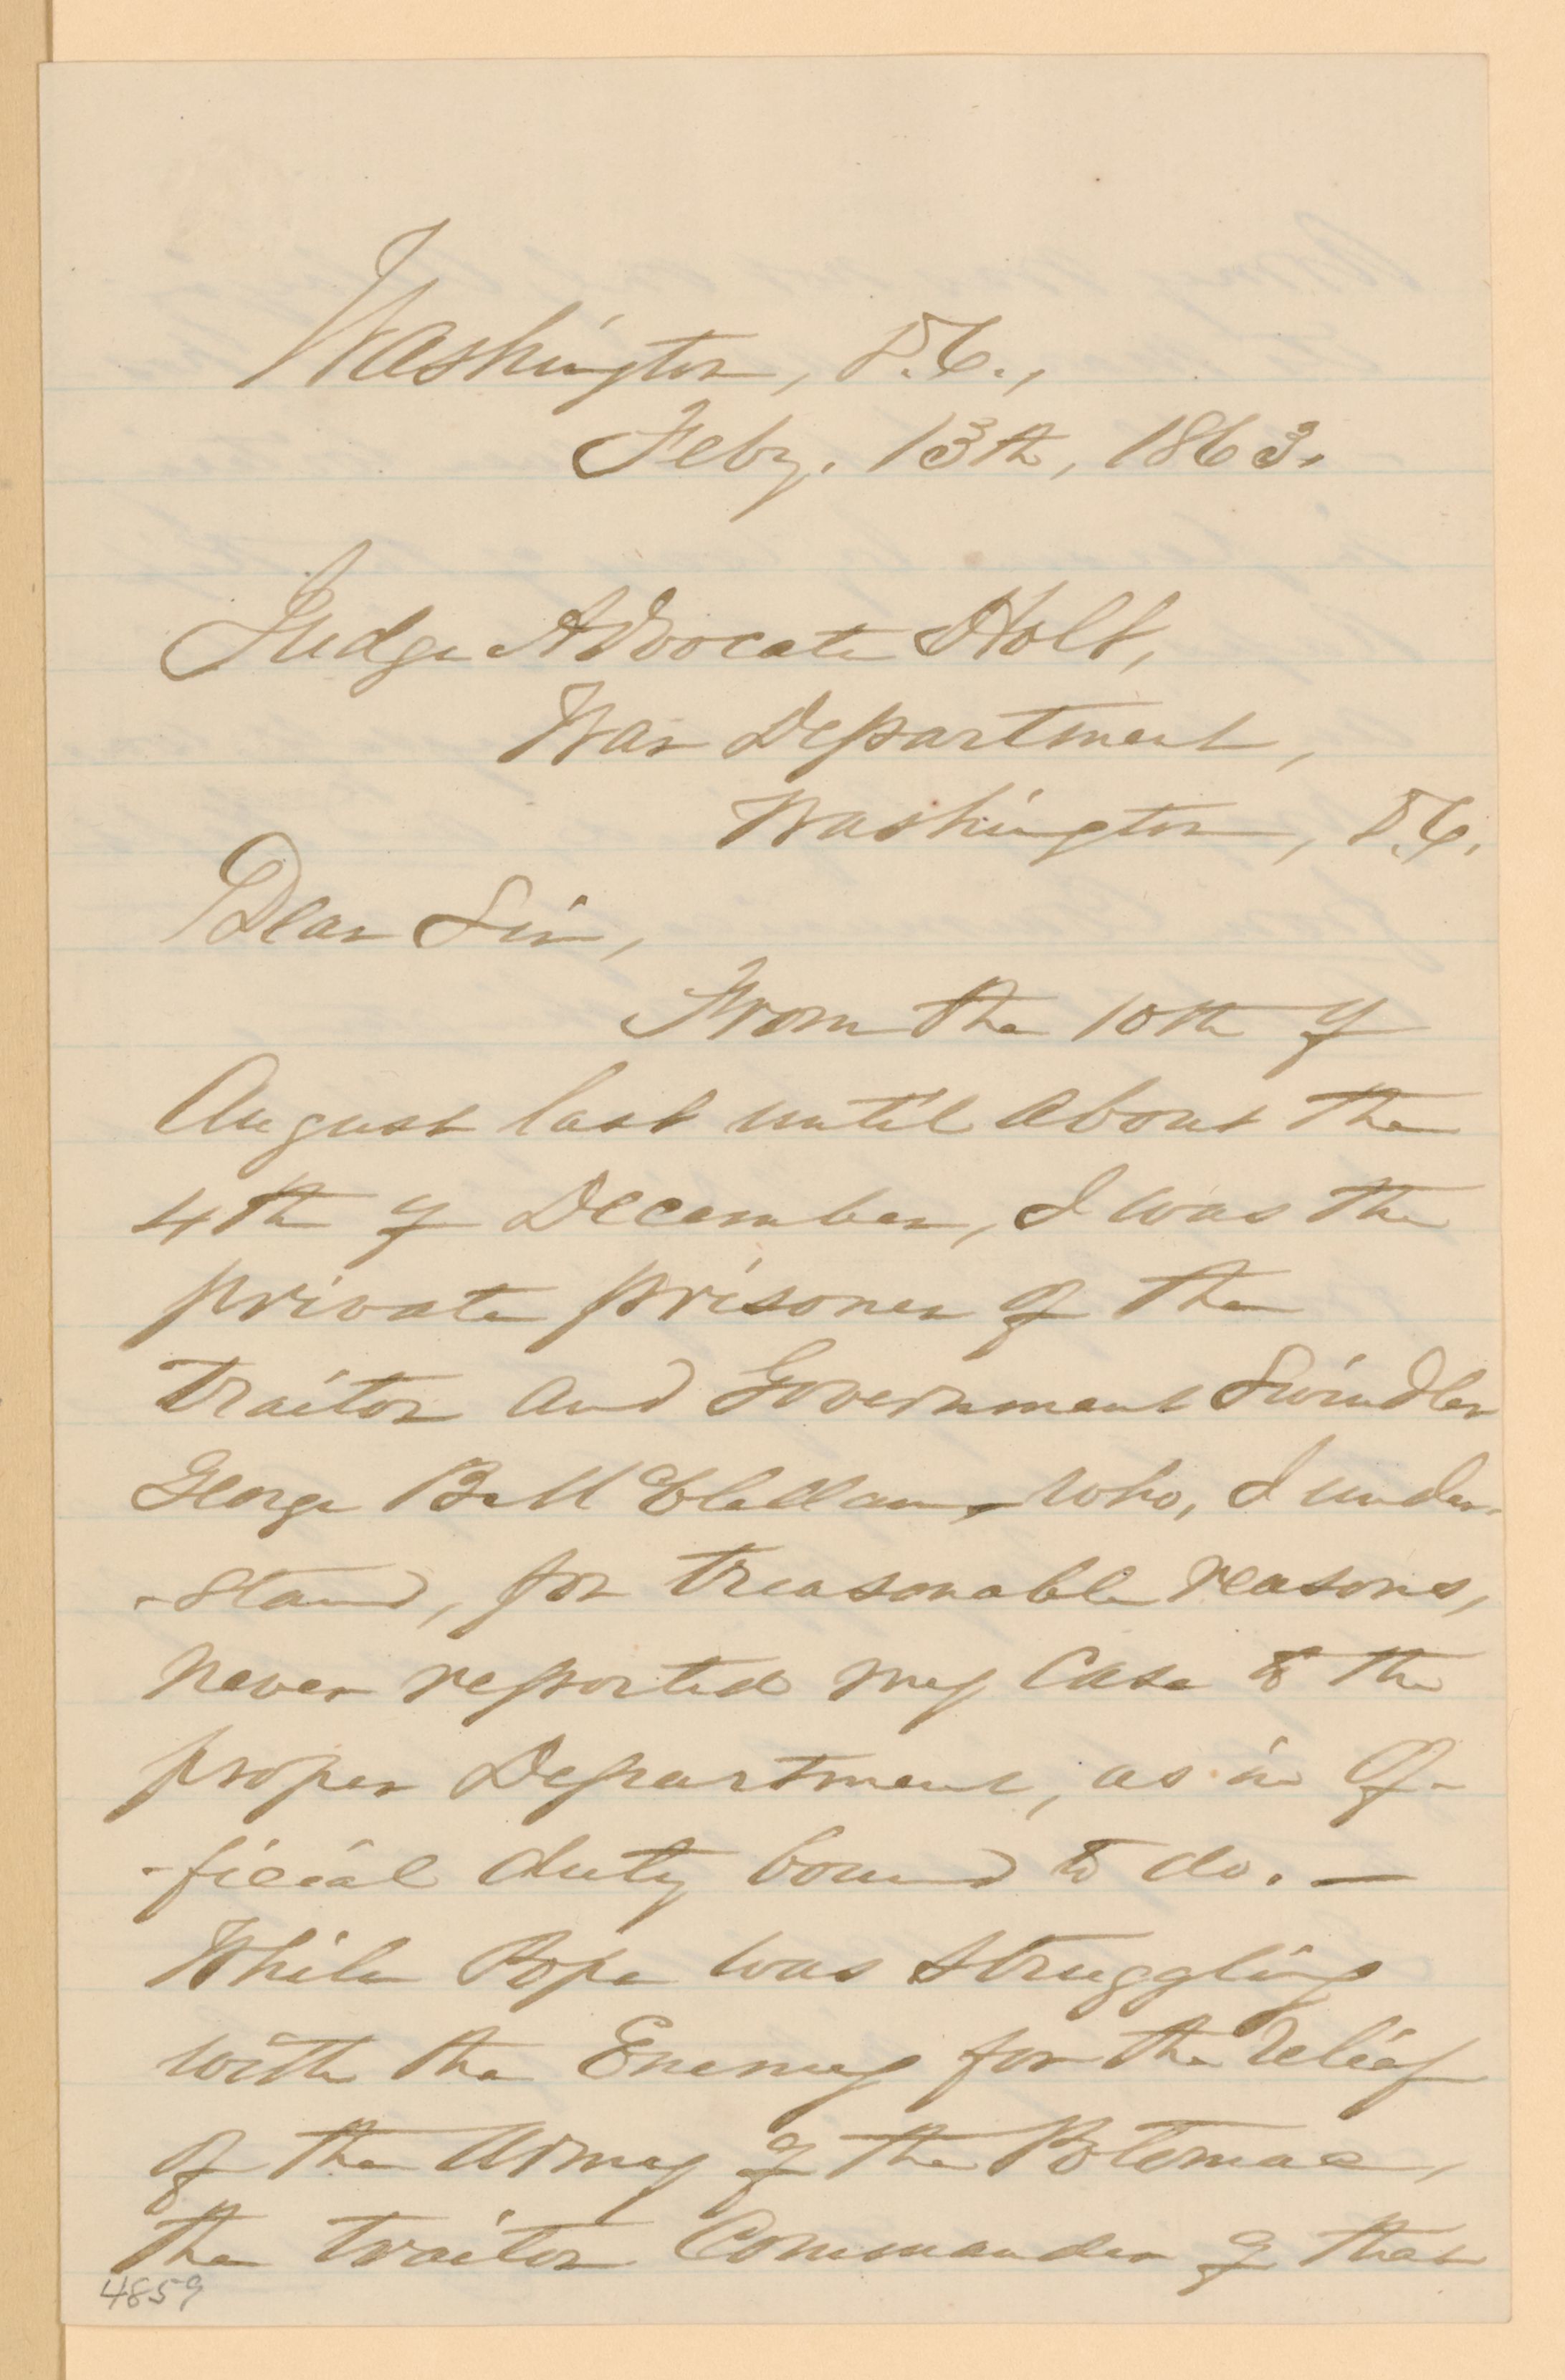 Washington, D.C.,
Feby. 13th, 1863.
Judge Advocate Holt,
War Department,
Washington, D.C.
Dear Sir,
From the 10th of
August last until about the
4th of December, I was the
private prisoner of the
traitor and Government Swindler
George B. McClellan, who, I under-
-stand, for treasonable reasons,
never reported my case to the
proper Department, as in of-
-ficial duty bound to do. —
While Pope was struggling
with the Enemy for the relief
of the Army of the Potomac,
the traitor Commander of that
4859